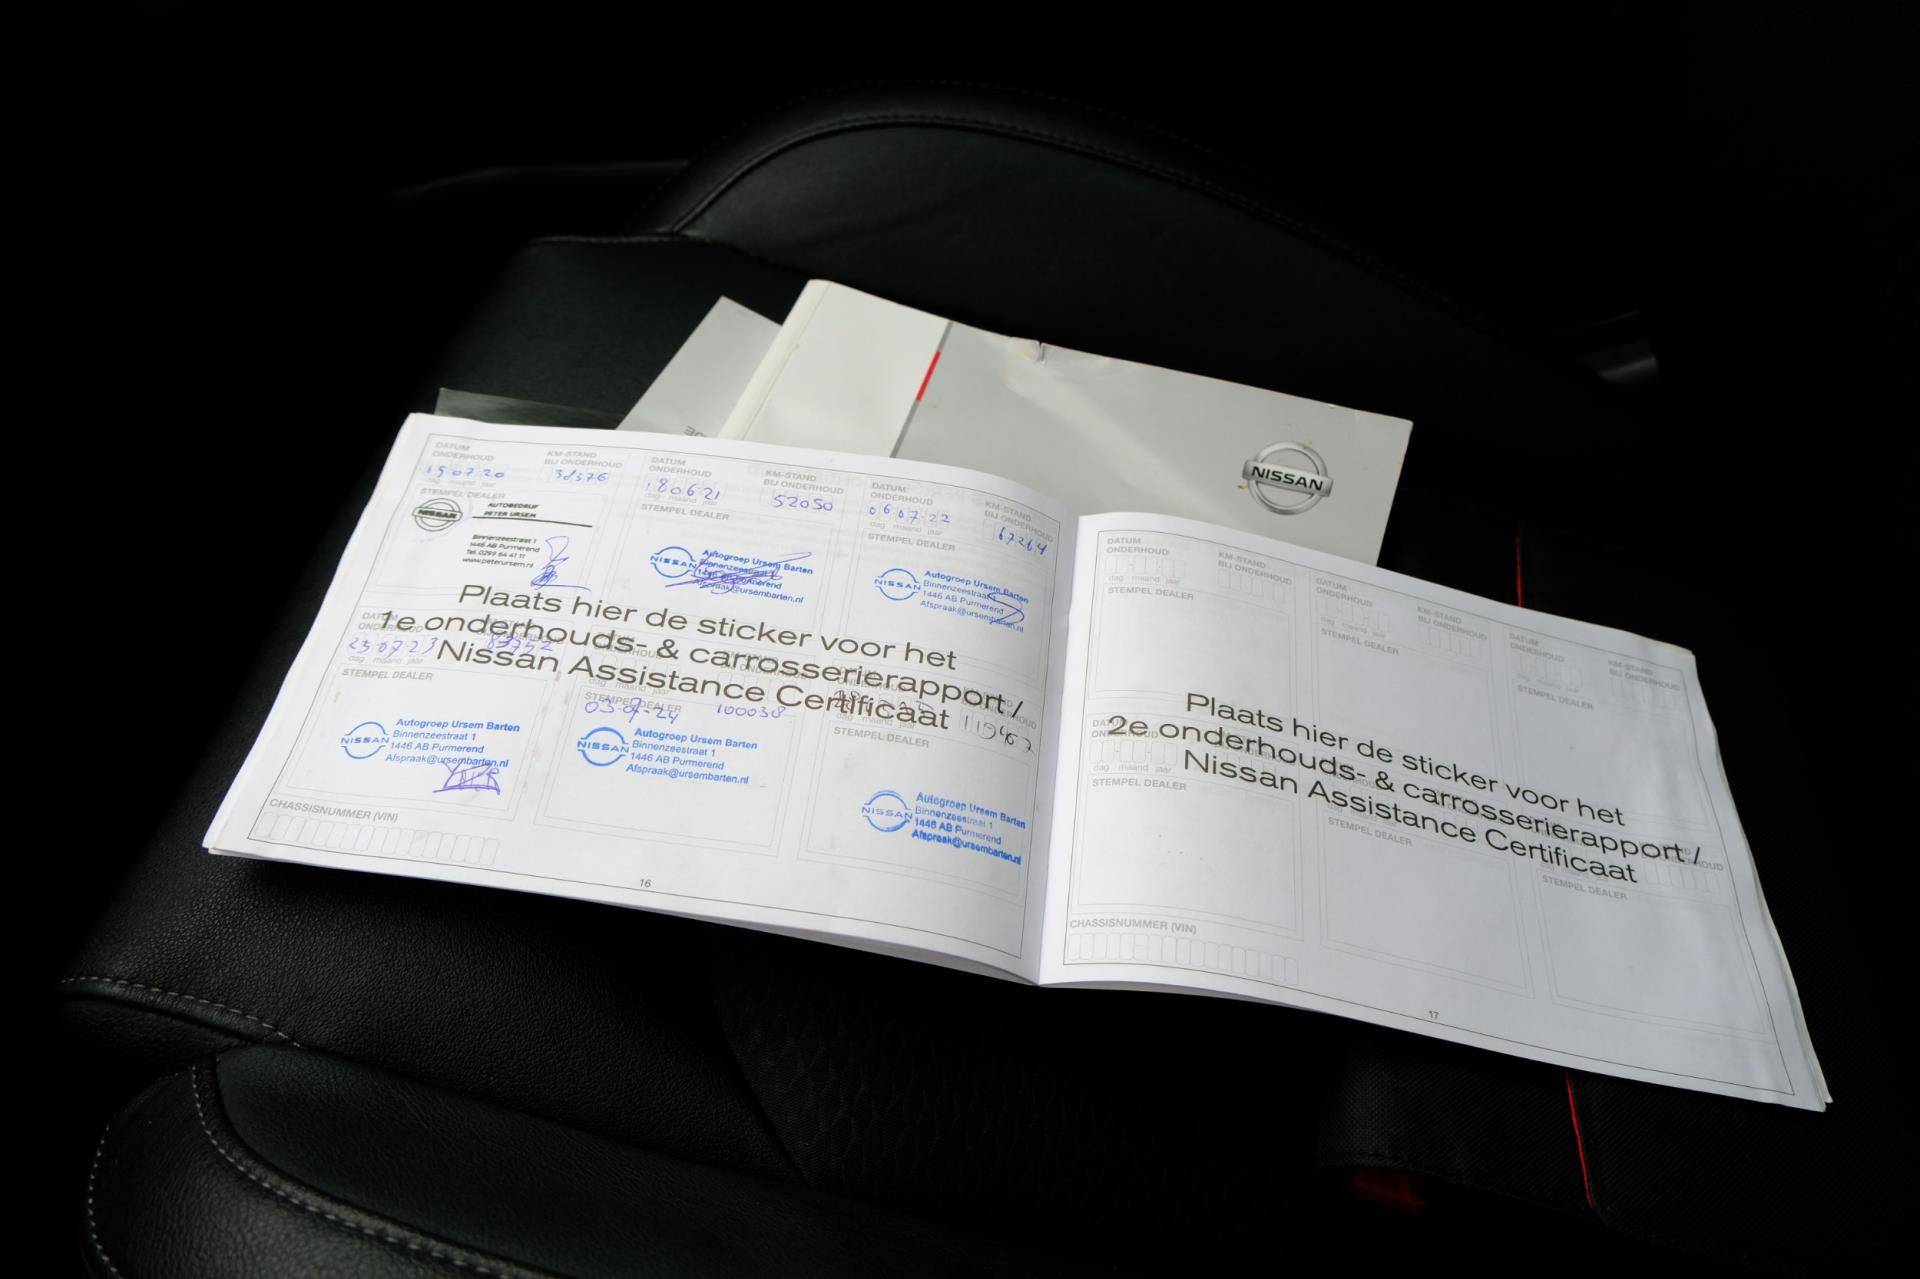 NISSAN
DATUM ONDERHOUD
KM-STAND BIJ ONDERHOUD
15 07 20
38576
dag maand jaar
STEMPEL DEALER
NISSAN
AUTOBEDRIJF
PETER URSEM
Binnenzeestraat 1
1446 AB Purmerend
Tel. 0299 64 41 11
www.peterursem.nl
DATUM ONDERHOUD
KM-STAND BIJ ONDERHOUD
180621
52050
dag maand jaar
STEMPEL DEALER
NISSAN
Autogroep Ursem Barten
Binnenzeestraat 1
1446 AB Purmerend
Afspraak@ursembarten.nl
DATUM ONDERHOUD
KM-STAND BIJ ONDERHOUD
06 07 22
67264
dag maand jaar
STEMPEL DEALER
NISSAN
Autogroep Ursem Barten
Binnenzeestraat 1
1446 AB Purmerend
Afspraak@ursembarten.nl
Plaats hier de sticker voor het
1e onderhouds- & carrosserierapport /
Nissan Assistance Certificaat
DATUM ONDERHOUD
25 07 23
83752
dag maand jaar
STEMPEL DEALER
NISSAN
Autogroep Ursem Barten
Binnenzeestraat 1
1446 AB Purmerend
Afspraak@ursembarten.nl
dag maand jaar
STEMPEL DEALER
03-07-24
100038
NISSAN
Autogroep Ursem Barten
Binnenzeestraat 1
1446 AB Purmerend
Afspraak@ursembarten.nl
119467
dag maand jaar
STEMPEL DEALER
NISSAN
Autogroep Ursem Barten
Binnenzeestraat 1
1446 AB Purmerend
Afspraak@ursembarten.nl
CHASSISNUMMER (VIN)
16
DATUM ONDERHOUD
KM-STAND BIJ ONDERHOUD
dag maand jaar
STEMPEL DEALER
DATUM ONDERHOUD
KM-STAND BIJ ONDERHOUD
dag maand jaar
STEMPEL DEALER
DATUM ONDERHOUD
KM-STAND BIJ ONDERHOUD
dag maand jaar
STEMPEL DEALER
Plaats hier de sticker voor het
2e onderhouds- & carrosserierapport /
Nissan Assistance Certificaat
DATUM ONDERHOUD
dag maand jaar
STEMPEL DEALER
STEMPEL DEALER
STEMPEL DEALER
CHASSISNUMMER (VIN)
17